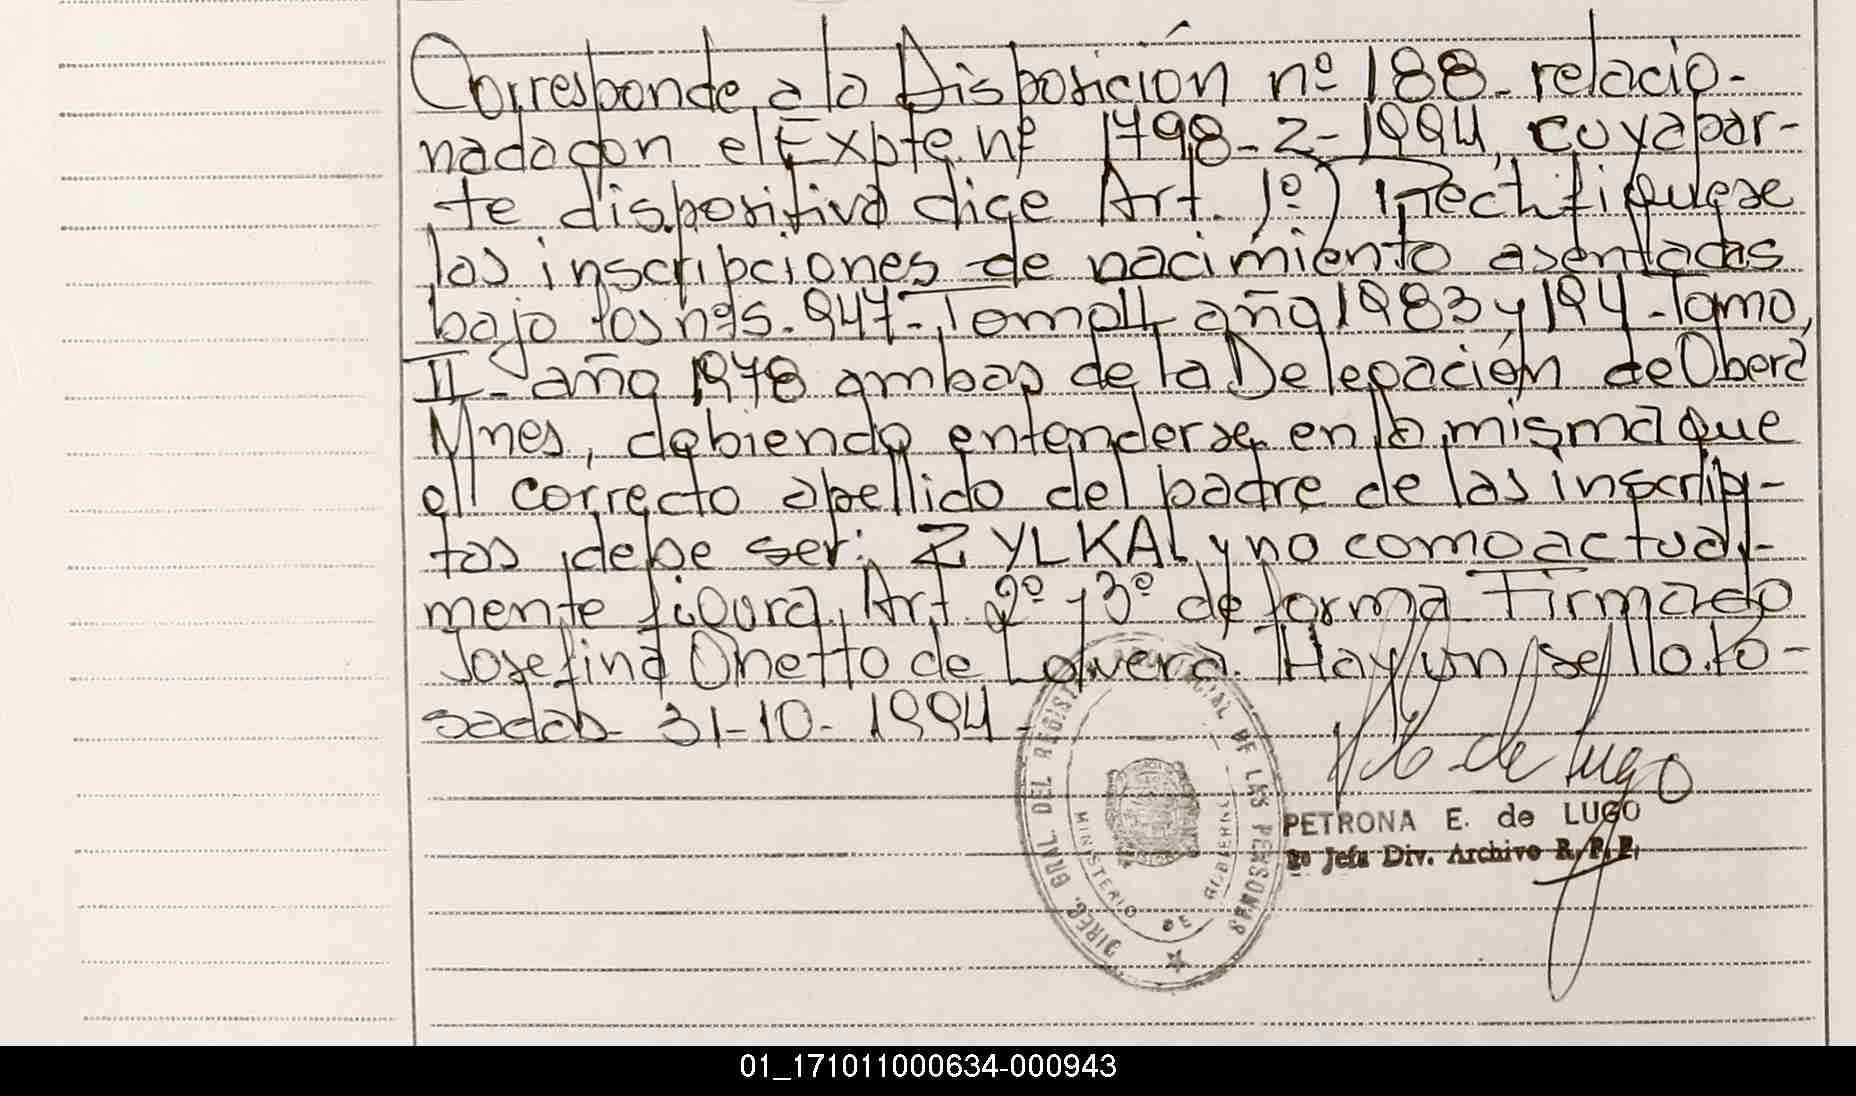 Corresponde a la Disposición nº 188- relacio-
nada con el Expte. nº 1798-2-1994, cuya par-
te dispositiva dice Art. 1º) Rectifiquese
las inscripciones de nacimiento asentadas
bajo los nºs. 947- Tomo II año 1983 y 194 - Tomo
II - año 1978 ambas de la Delegación de Oberá
Mnes, debiendo entenderse en la misma que
el correcto apellido del padre de las inscrip-
tas debe ser: ZYLKAL y no como actual-
mente figura, Art. 2º y 3º de forma Firmado
Josefina Onetto de Lovera. Hay un sello. Po-
sadas 31-10-1994 -
DIREC. GRAL. DEL REGISTRO PROVINCIAL DE LAS PERSONAS
MINISTERIO DE GOBIERNO
de Lugo
PETRONA E. de LUGO
2º Jefa Div. Archivo R. P. P.
01_171011000634-000943